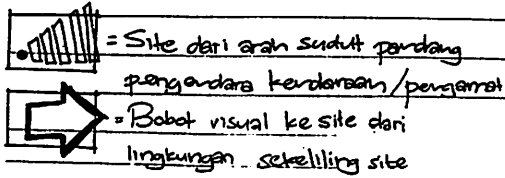 = Site dari arah sudut pandang
pengendara kendaraan/pengamat
= Bobot visual ke site dari
lingkungan sekeliling site